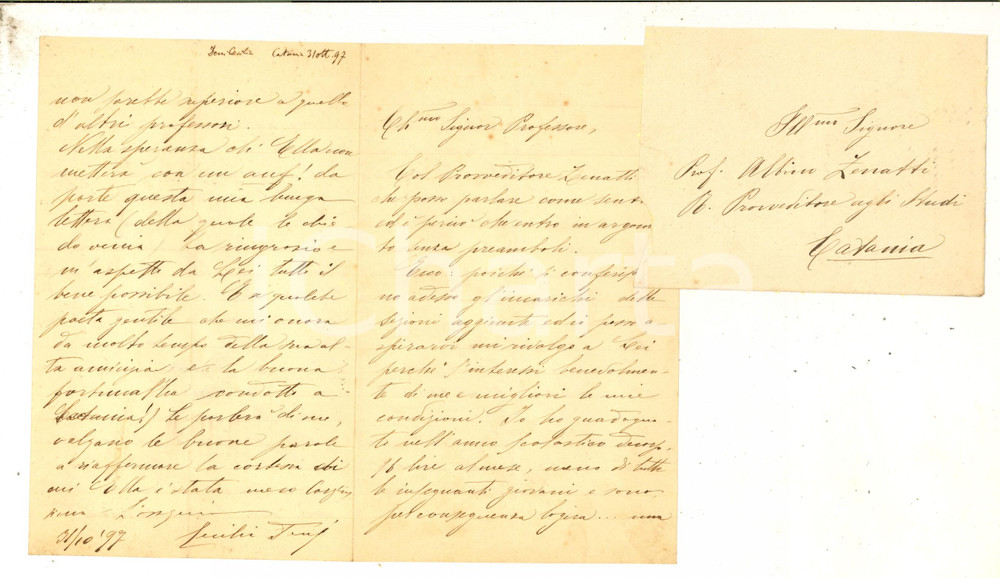 Catania 31 ott. 97
non sarebbe superiore a quello
d'altri professori.
Nella speranza ch'Ella non
metterà con un auf! da
parte questa mia lunga
lettera (della quale le chie
do venia) La ringrazio e
m'aspetto da Lei tutto il
bene possibile. E se qualche
poeta gentile che mi onora
da molto tempo della sua al
ta amicizia e la buona
fortuna l'ha condotto a
Catania!) le parlerà di me,
valgano le buone parole
a riaffermare la cortesia di
cui Ella è stata meco larghis
sima
31/10/97
Ch.mo Signor Professore,
Col Provveditore Zenatti
che posso parlare come sento
ed è perciò che entro in argomen
to senza preamboli.
Ecco: poichè si conferisco
no adesso gl'incarichi delle
sezioni aggiunte ed io posso a
spirarvi mi rivolgo a Lei
perchè s'interessi benevolmen
te di me e migliori le mie
condizioni. Io ho guadagna
to nell'anno scolastico decorso,
96 lire al mese, meno di tutti
le insegnanti giovani e sono
per conseguenza logica... una
Ill.mo Signore
Prof. Albino Zenatti
R. Provveditore agli Studi
Catania
iCharta